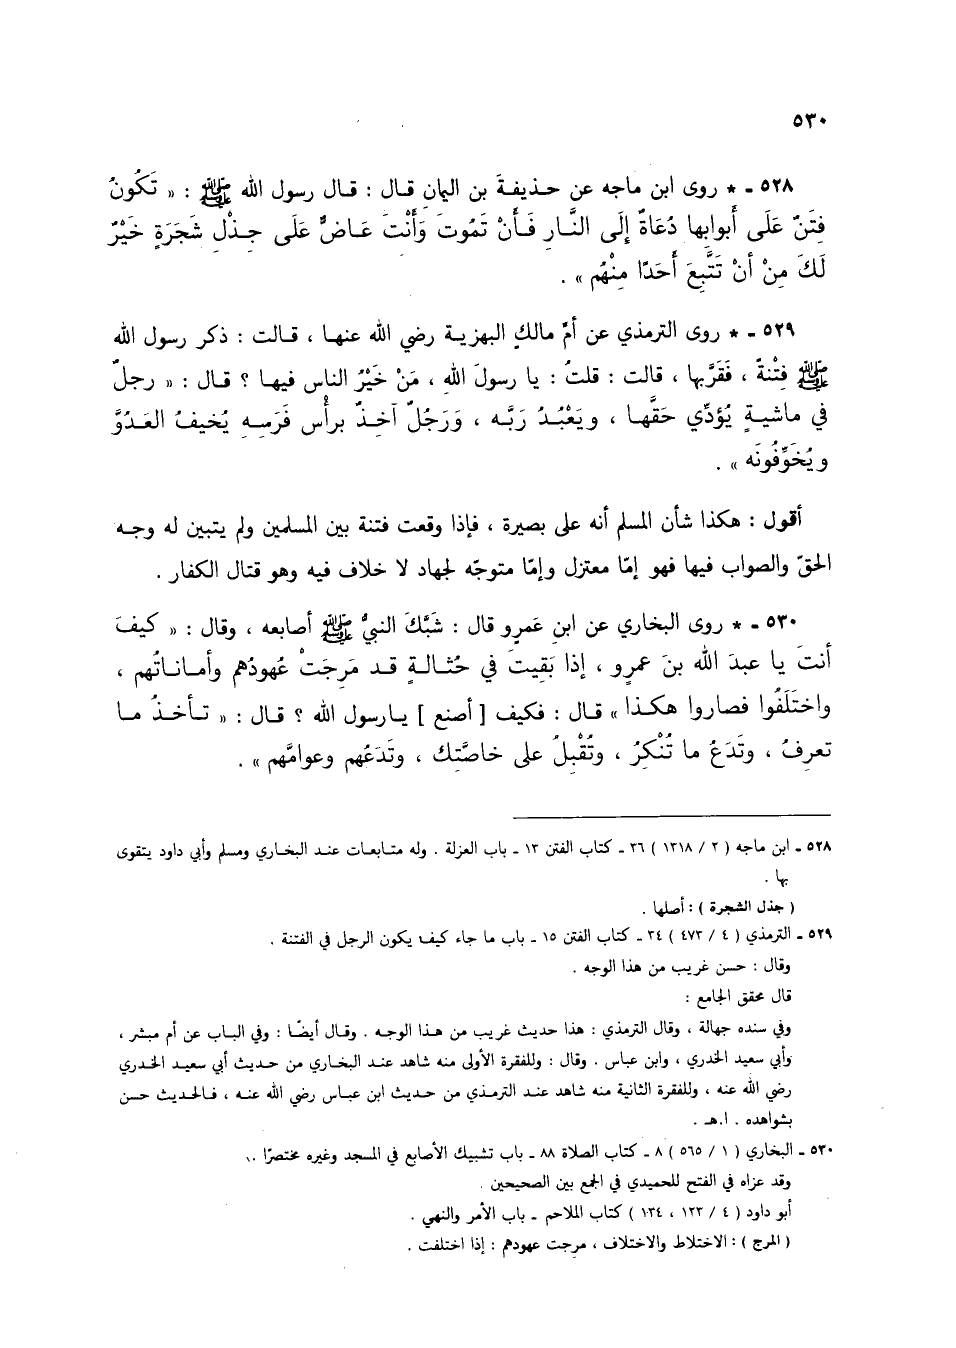 ٥٣٠
٥٢٨ ـ * روى ابن ماجه عن حذيفةَ بن اليمان قال : قال رسول الله ﷺ : « تَكُونُ
فِتَنٌ عَلَى أَبوابها دُعَاةٌ إِلَى النَّارِ فَأَنْ تَمُوتَ وَأَنْتَ عَاضٌّ عَلَى جِذْلِ شَجَرَةٍ خَيْرٌ
لَكَ مِنْ أَنْ تَتَّبِعَ أَحَدًا مِنْهُم » .
٥٢٩ ـ * روى الترمذي عن أمّ مالكٍ البهزية رضي الله عنها ، قالت : ذكر رسول الله
ﷺ فِتْنةً ، فَقَرَّبها ، قالت : قلتُ : يا رسولَ اللهِ ، مَنْ خَيْرُ الناس فيها ؟ قال : « رجلٌ
في ماشيةٍ يُؤدِّي حَقَّها ، ويَعْبُدُ رَبَّه ، وَرَجُلٌ آخِذٌ برأْس فَرَسِهِ يُخيفُ العَدُوَّ
ويُخَوِّفُونَه » .
أقول : هكذا شأن المسلم أنه على بصيرة ، فإذا وقعت فتنة بين المسلمين ولم يتبين له وجه
الحقّ والصواب فيها فهو إمّا معتزل وإمّا متوجّه لجهاد لا خلاف فيه وهو قتال الكفار .
٥٣٠ ـ * روى البخاري عن ابنِ عَمرٍو قال : شَبَّكَ النبيُّ ﷺ أصابعه ، وقال : « كيفَ
أنتَ يا عبدَ الله بنَ عمرٍو ، إذا بَقِيتَ في حُثالةٍ قد مَرِجَتْ عُهودُهم وأماناتُهم ،
واختَلَفُوا فصاروا هكذا » قال : فكيف [ أصنع ] يارسول الله ؟ قال : « تأخذُ ما
تعرفُ ، وتَدَعُ ما تُنْكِرُ ، وتُقْبِلُ على خاصَّتِك ، وتَدَعُهم وعوامَّهم » .
٥٢٨ ـ ابن ماجه ( ٢ / ١٣١٨ ) ٣٦ ـ كتاب الفتن ١٣ ـ باب العزلة . وله متابعات عند البخاري ومسلم وأبي داود يتقوى
بها .
( جذل الشجرة ) : أصلها .
٥٢٩ ـ الترمذي ( ٤ / ٤٧٣ ) ٣٤ ـ كتاب الفتن ١٥ ـ باب ما جاء كيف يكون الرجل في الفتنة .
وقال : حسن غريب من هذا الوجه .
قال محقق الجامع :
وفي سنده جهالة ، وقال الترمذي : هذا حديث غريب من هذا الوجه . وقال أيضًا : وفي الباب عن أم مبشر ،
وأبي سعيد الخدري ، وابن عباس . وقال : وللفقرة الأولى منه شاهد عند البخاري من حديث أبي سعيد الخدري
رضي الله عنه ، وللفقرة الثانية منه شاهد عند الترمذي من حديث ابن عباس رضي الله عنه ، فالحديث حسن
بشواهده . ا.هـ .
٥٣٠ ـ البخاري ( ١ / ٥٦٥ ) ٨ ـ كتاب الصلاة ٨٨ ـ باب تشبيك الأصابع في المسجد وغيره مختصرًا .
وقد عزاه في الفتح للحميدي في الجمع بين الصحيحين .
أبو داود ( ٤ / ١٢٣ ، ١٢٤ ) كتاب الملاحم ـ باب الأمر والنهي .
( المرج ) : الاختلاط والاختلاف ، مرجت عهودهم : إذا اختلفت .